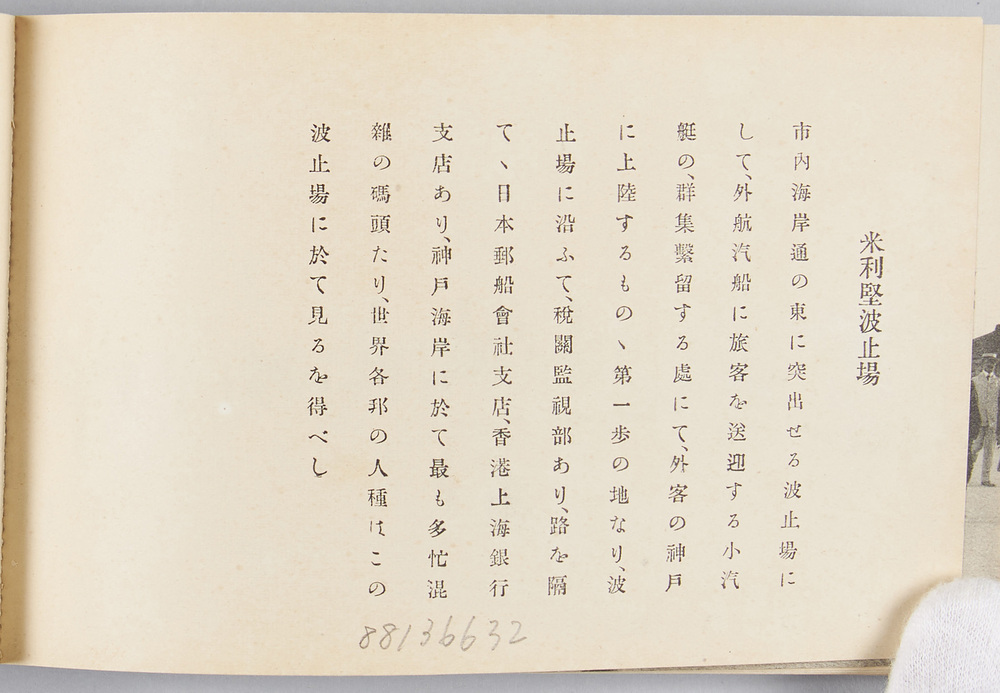 米利堅波止場
市內海岸通の東に突出せる波止場に
して、外航汽船に旅客を送迎する小汽
艇の、群集繫留する處にて、外客の神戶
に上陸するものヽ第一歩の地なり、波
止場に沿ふて、稅關監視部あり、路を隔
てヽ日本郵船會社支店、香港上海銀行
支店あり、神戶海岸に於て最も多忙混
雜の碼頭たり、世界各邦の人種はこの
波止場に於て見るを得べし
88136632